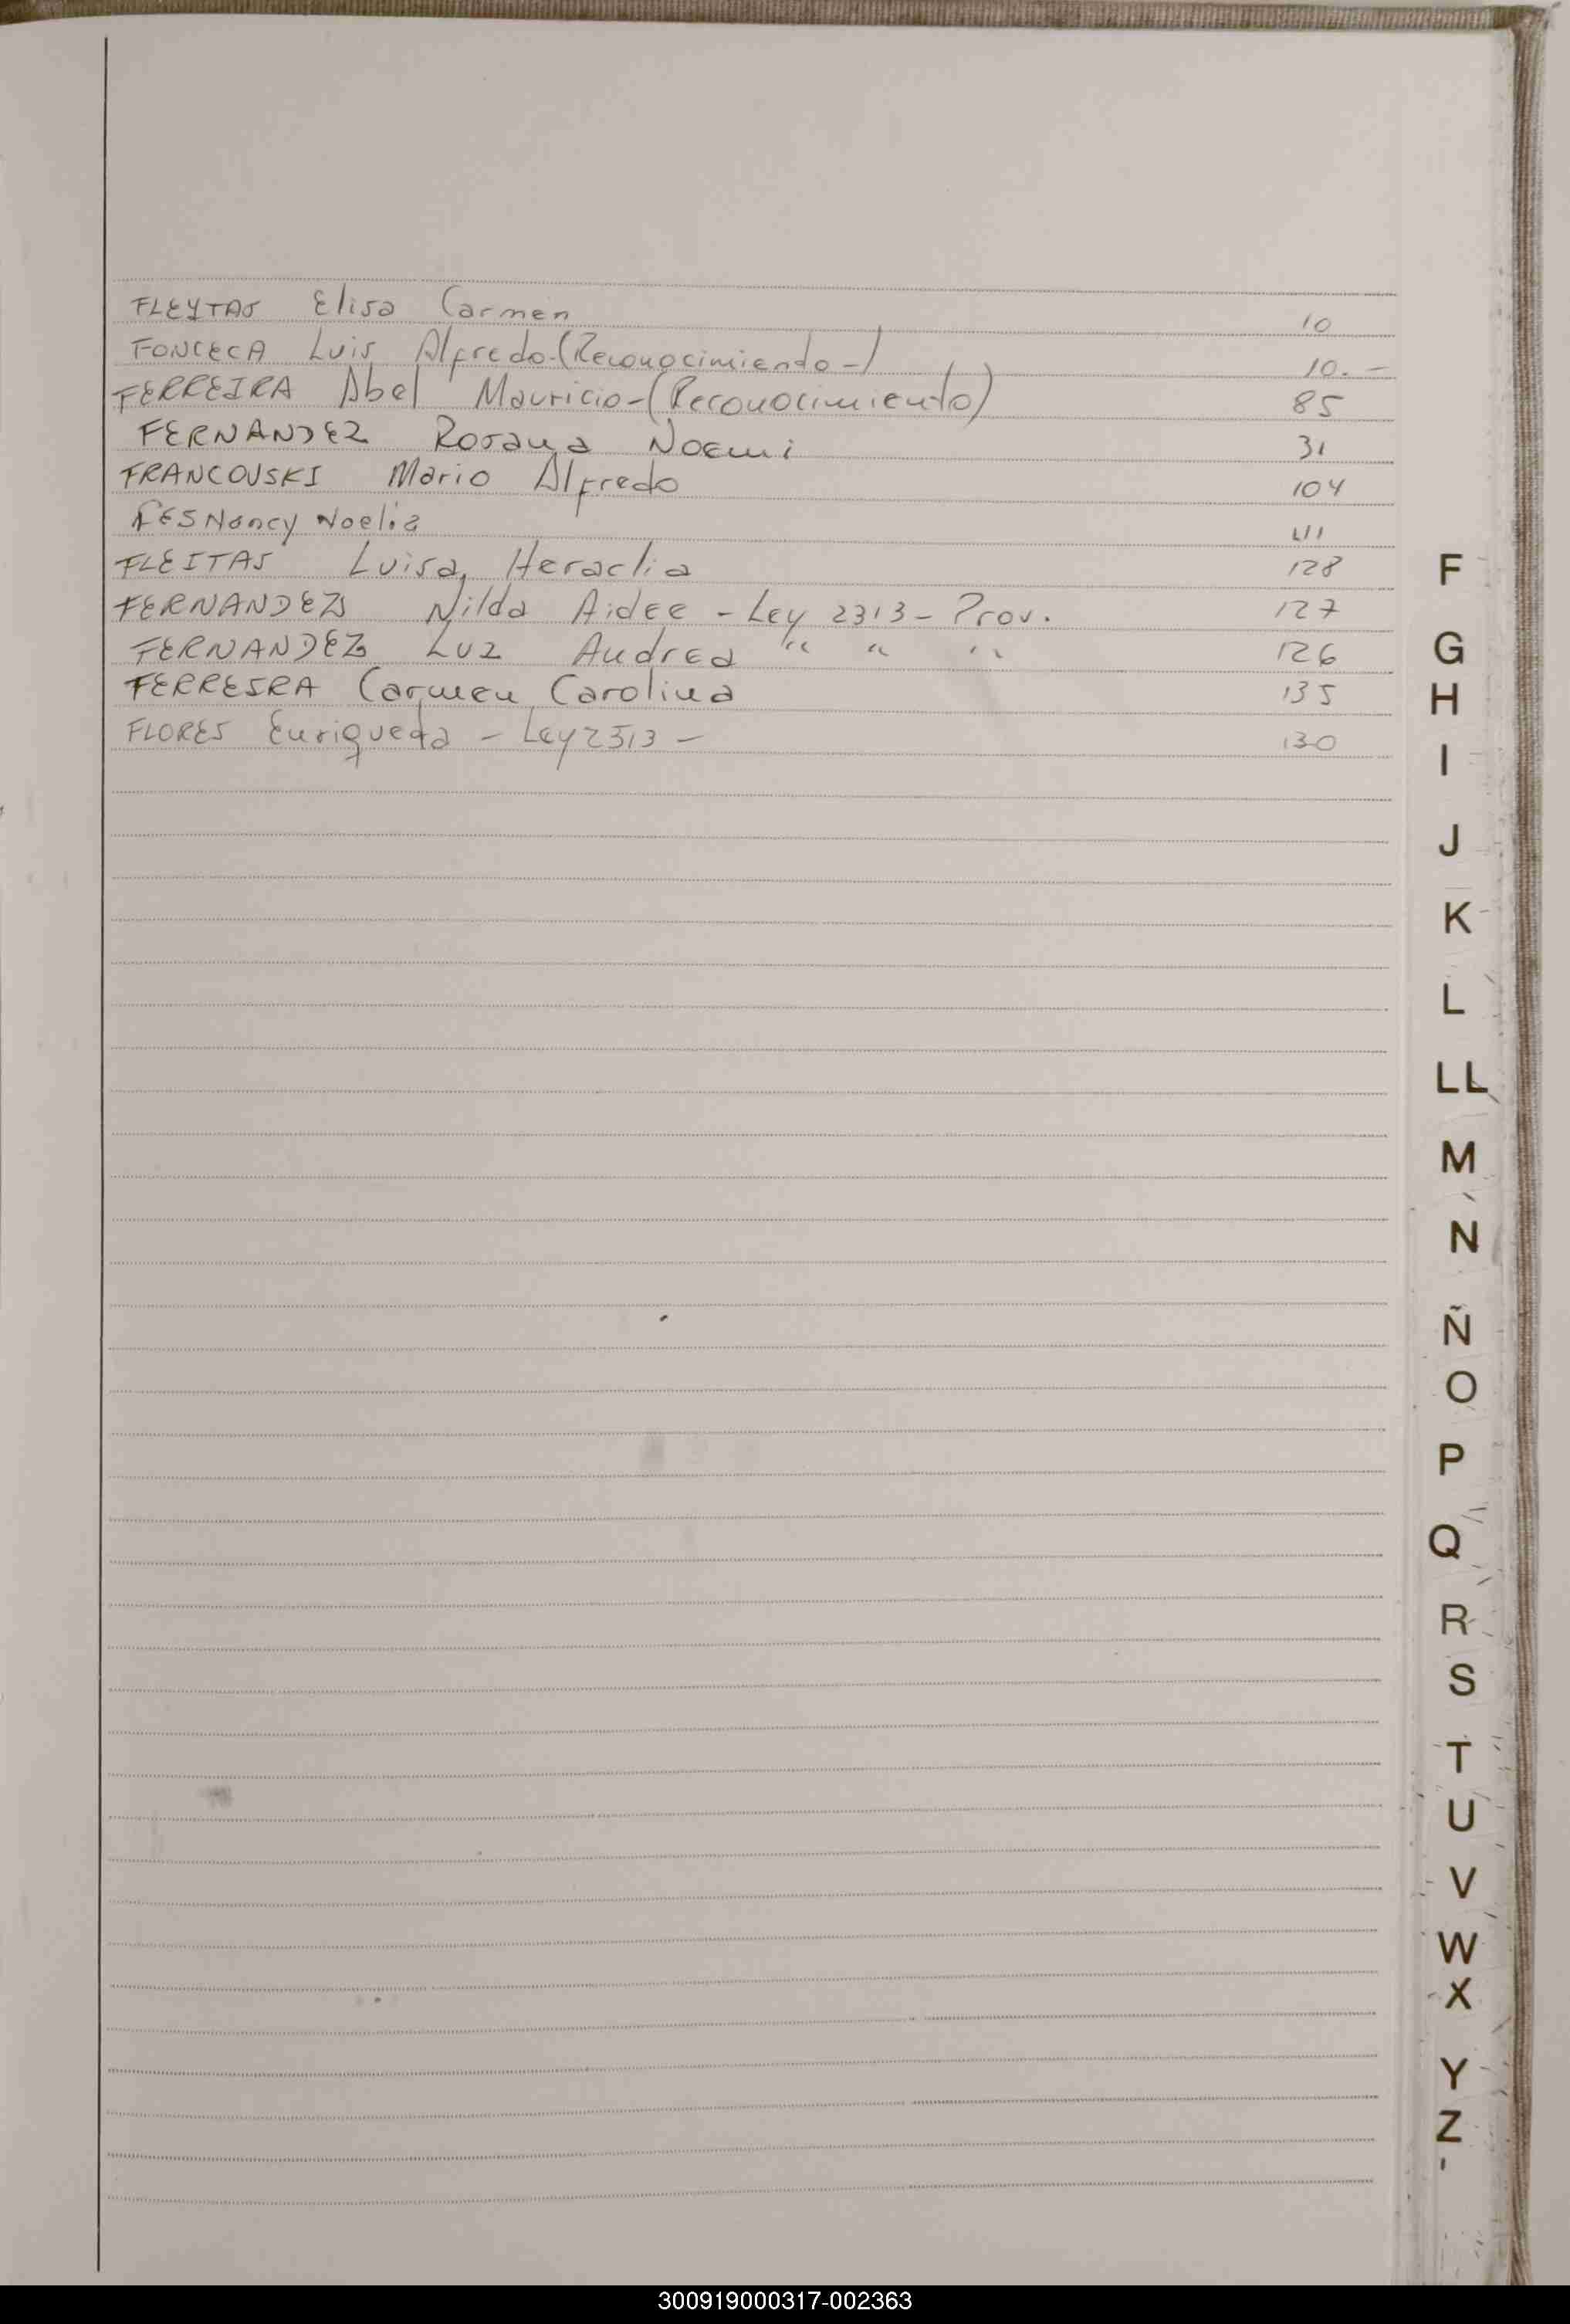 FLEYTAS Elisa Carmen 10
FONCECA Luis Alfredo-(Reconocimiento-) 10.-
FERREIRA Abel Mauricio-(Reconocimiento) 85
FERNANDEZ Rosana Noemi 31
FRANCOVSKI Mario Alfredo 104
FES Nancy Noelia 111
FLEITAS Luisa Heraclia 128
FERNANDEZ Nilda Aidee - Ley 2313 - Prov. 127
FERNANDEZ Luz Andrea " " " 126
FERREIRA Carmen Carolina 135
FLORES Enriqueta - Ley 2313 - 130
F
G
H
I
J
K
L
LL
M
N
Ñ
O
P
Q
R
S
T
U
V
W
X
Y
Z
300919000317-002363